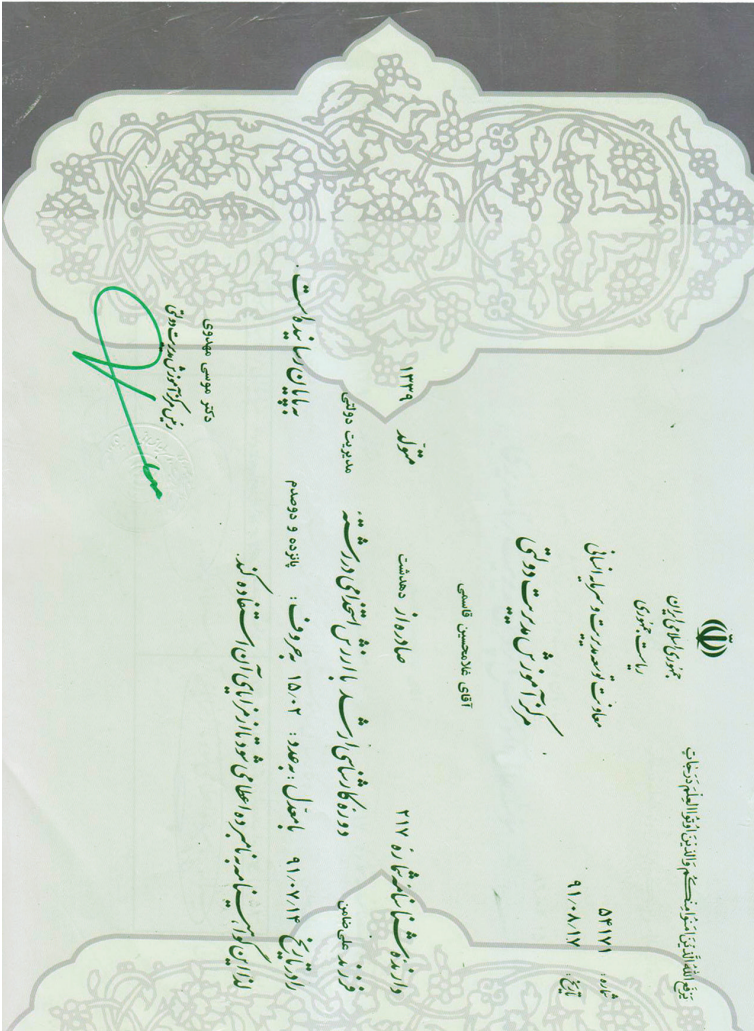 یَرْفَعِ اللّهُ الَّذینَ آمَنُوا مِنْکُمْ وَالَّذینَ اُوتُوا الْعِلْمَ دَرَجاتٍ
جمهوری اسلامی ایران
ریاست جمهوری
معاونت توسعه مدیریت و سرمایه انسانی
مرکز آموزش مدیریت دولتی
شماره: ۵۴۱۷۱
تاریخ: ۹۱/۰۸/۱۷
آقای غلامحسین قاسمی
دارنده شناسنامه شماره ۲۱۷ صادره از دهدشت متولد ۱۳۳۹
فرزند علی ضامن دوره کارشناسی ارشد با ارزش استخدامی در رشته مدیریت دولتی
را در تاریخ ۹۱/۰۷/۱۴ با معدل: به عدد: ۱۵/۰۲ به حروف: پانزده و دوصدم به پایان رسانیده است.
لذا این گواهینامه به نامبرده اعطا می شود تا از مزایای آن استفاده کند.
دکتر موسی مهدوی
رئیس مرکز آموزش مدیریت دولتی